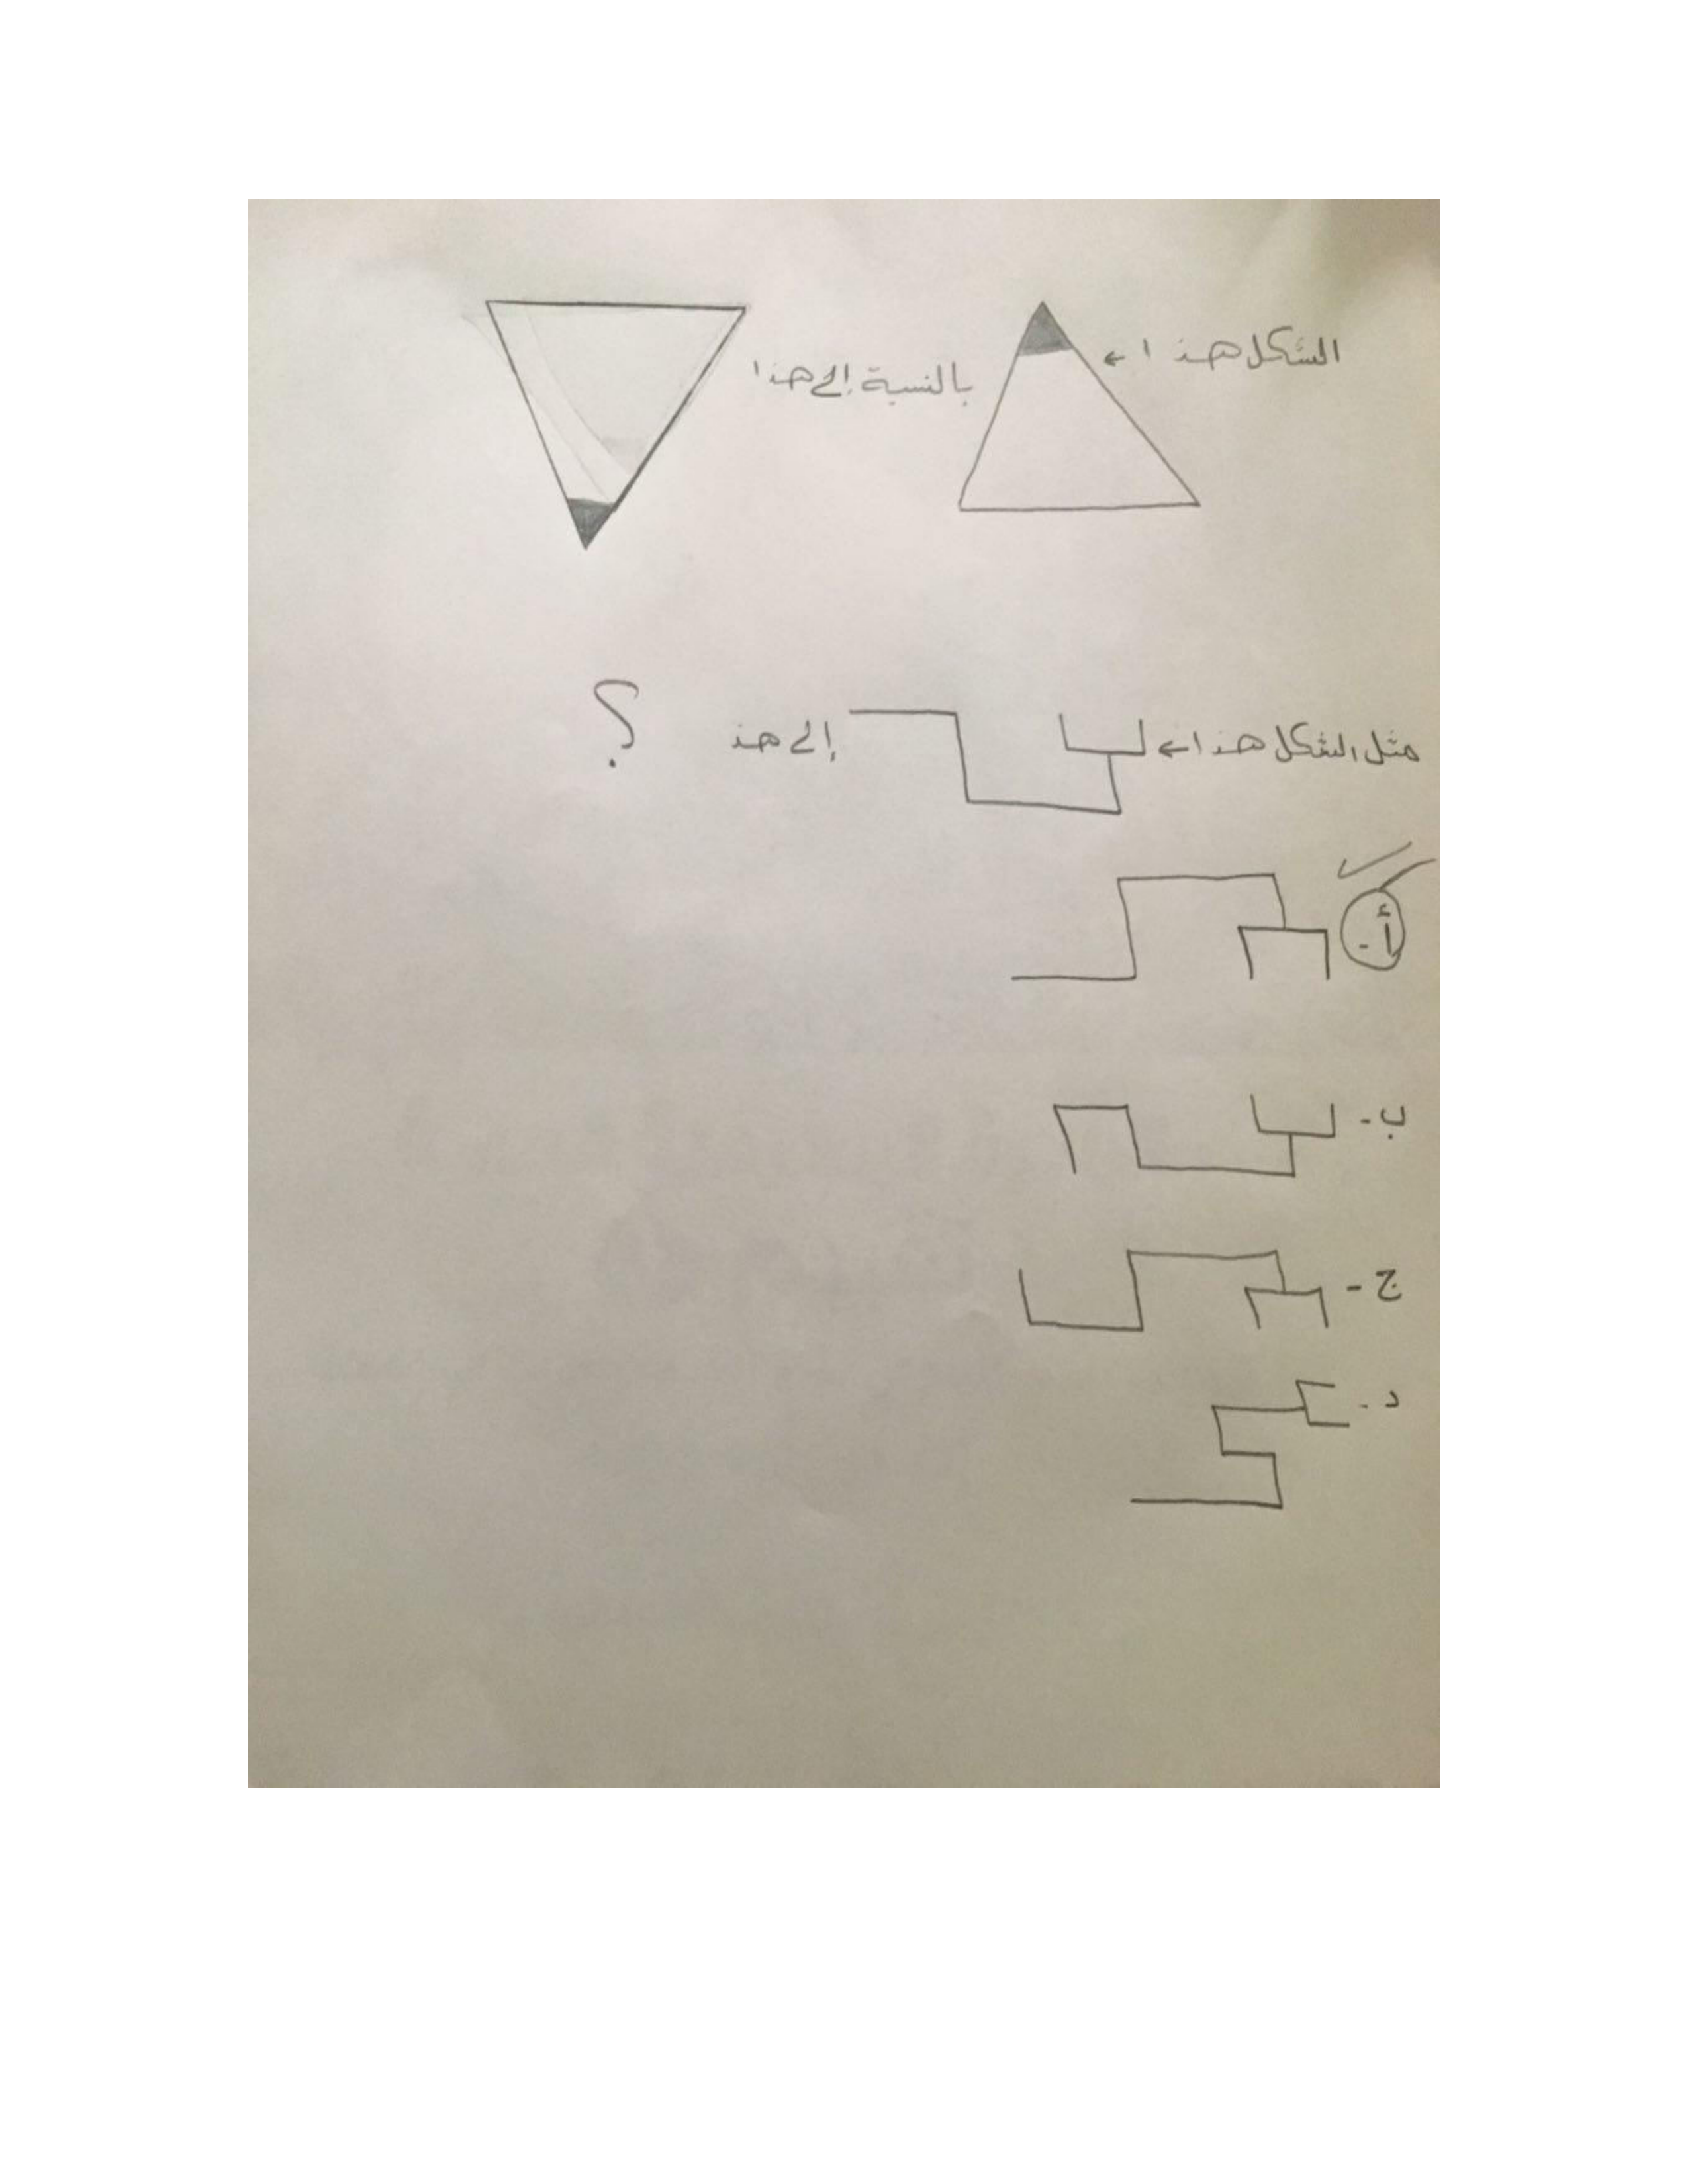 الشكل هذا ←
بالنسبة إلى هذا
مثل الشكل هذا ←
إلى هذ
؟
أ -
ب -
ج -
د -